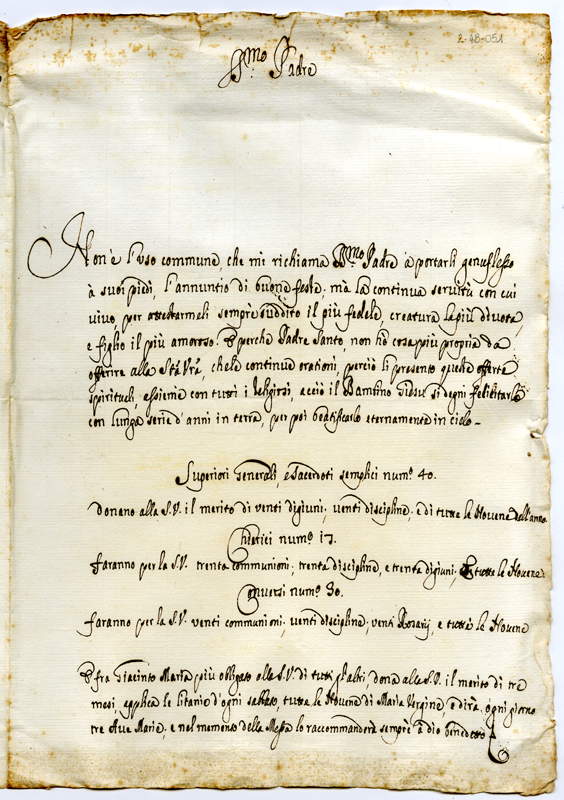 2-48-051
B.mo Padre
Non è l'uso commune, che mi richiama B.mo Padre à portarli genuflesso
à suoi piedi, l'annuntio di buone feste, mà la continua servitù con cui
vivo, per attestarmeli sempre suddito il più fedele, creatura la più divota,
e figlio il più amoroso. E perche Padre Santo, non hò cosa più propria da
offerire alla S.tà V.ra, che le continue orationi, perciò li presento queste offerte
spirituali, assieme con tutti i Religiosi, acciò il Bambino Giesù si degni felicitarla
con lunga serie d'anni in terra, per poi beatificarlo eternamente in cielo -
Superiori Generali, e Sacerdoti semplici num.o 40.
donano alla S.V. il merito di venti digiuni; venti discipline, e di tutte le Novene dell'anno.
Chierici num.o 17.
faranno per la S.V. trenta Communioni; trenta discipline, e trenta digiuni; e tutte le Novene.
Conversi num.o 30.
faranno per la S.V. venti communioni; venti discipline; venti Rosarij, e tutte le Novene
E fra Giacinto Maria più obligato alla S.V. di tutti gl'altri, dona alla S.V. il merito di tre
mesi, applica le litanie d'ogni sabbato, tutte le Novene di Maria Vergine, e dirà, ogni giorno
tre Ave Marie; e nel memento della Messa lo raccommanderà sempre à dio benedetto